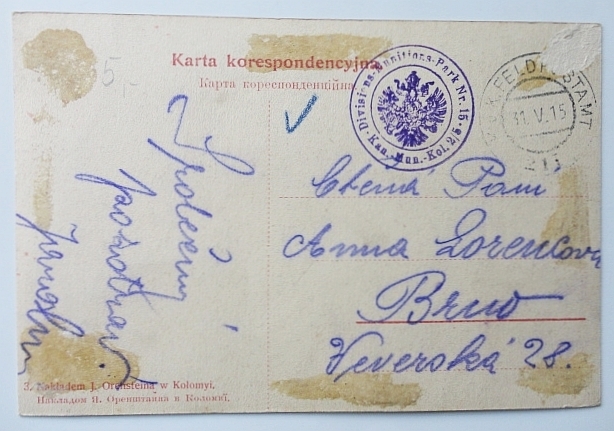 5,-
Karta korespondencyjna
Карта кореспонденційна
Divisions-Munitions-Park Nr. 15.
Kan.-Mun.-Kol. 2/5
K.u.K. FELDPOSTAMT
31. V. 15
Ctěná Paní
Anna Lorencova
Brno
Veverská 28.
Srdečný
pozdrav
3. Nakładem J. Orensteina w Kołomyi.
Накладом Я. Оренштайна в Коломиї.